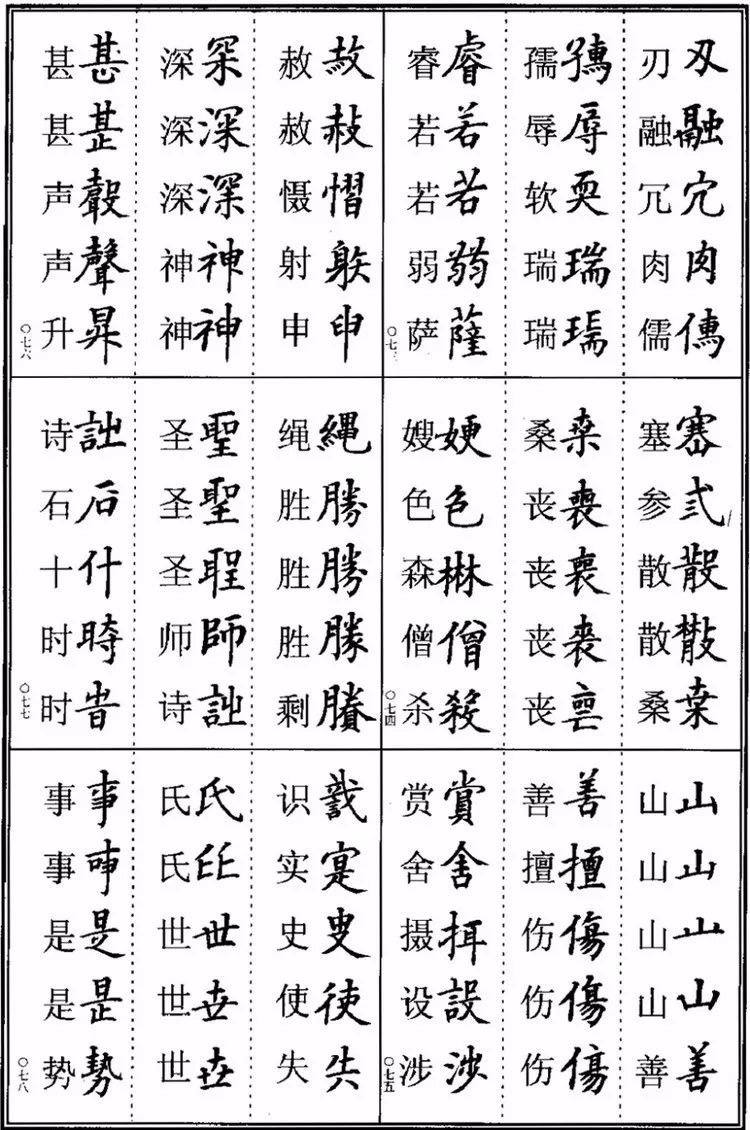 刄融宂肉
刃融冗肉儒
辱耎瑞
孺辱软瑞瑞
睿若若弱薩
睿若若弱萨
〇七
塞弍散散桒
塞参散散桑
桒喪
桑丧丧丧丧
色僧殺
嫂色森僧杀
〇七四
山山山山善
山山山山善
善擅傷傷傷
善擅伤伤伤
賞舍設涉
赏舍摄设涉
〇七五
赦慴申
赦赦慑射申
深深神神
深深深神神
甚聲昇
甚甚声声升
〇七六
繩勝勝勝
绳胜胜胜剩
聖聖師
圣圣圣师诗
石什旹
诗石十时时
〇七七
寔使失
识实史使失
氏世
氏氏世世世
事是是勢
事事是是势
〇七八